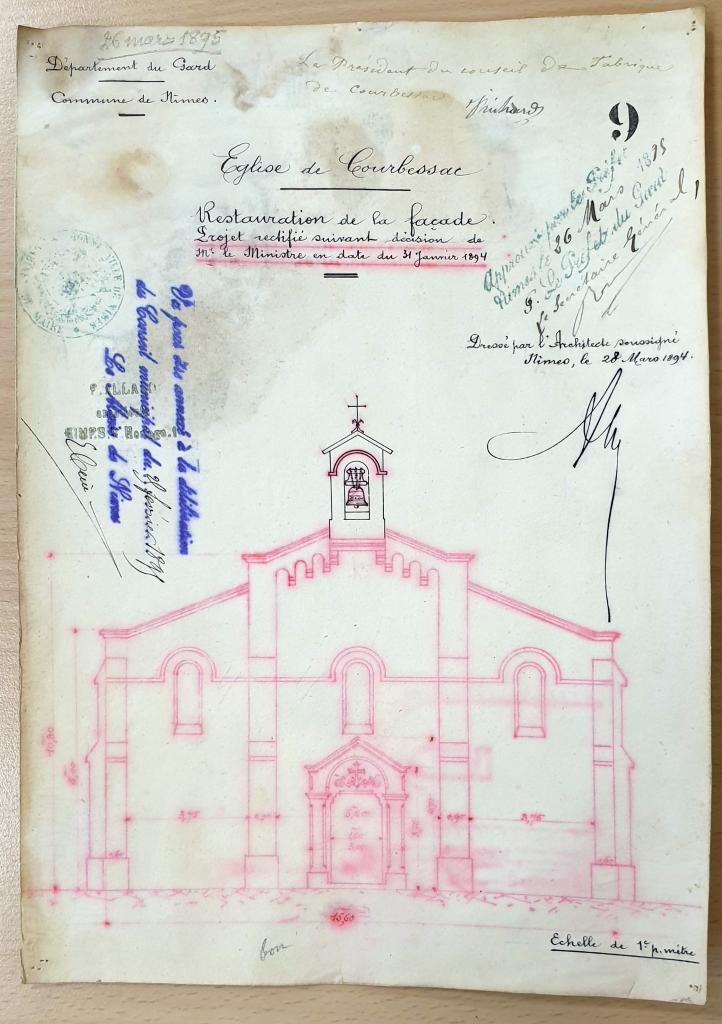 26 mars 1895
Département du Gard
Commune de Nimes.
Le Président du conseil de Fabrique
de Courbessac
9
Eglise de Courbessac
Restauration de la façade.
Projet rectifié suivant décision de
Mr le Ministre en date du 31 Janvier 1894
Approuvé par le Préfet
Nimes le 26 Mars 1895
P. Le Préfet du Gard
Le Secrétaire Général
Dressé par l'Architecte soussigné
Nimes, le 28 Mars 1894.
VILLE DE NIMES
MAIRIE
Vu pour être annexé à la délibération
du Conseil municipal du 28 février 1895
Le Maire de Nîmes
NIMES
10,60
3,75
0,90
3,75
15,60
bon
Echelle de 1c p. mètre